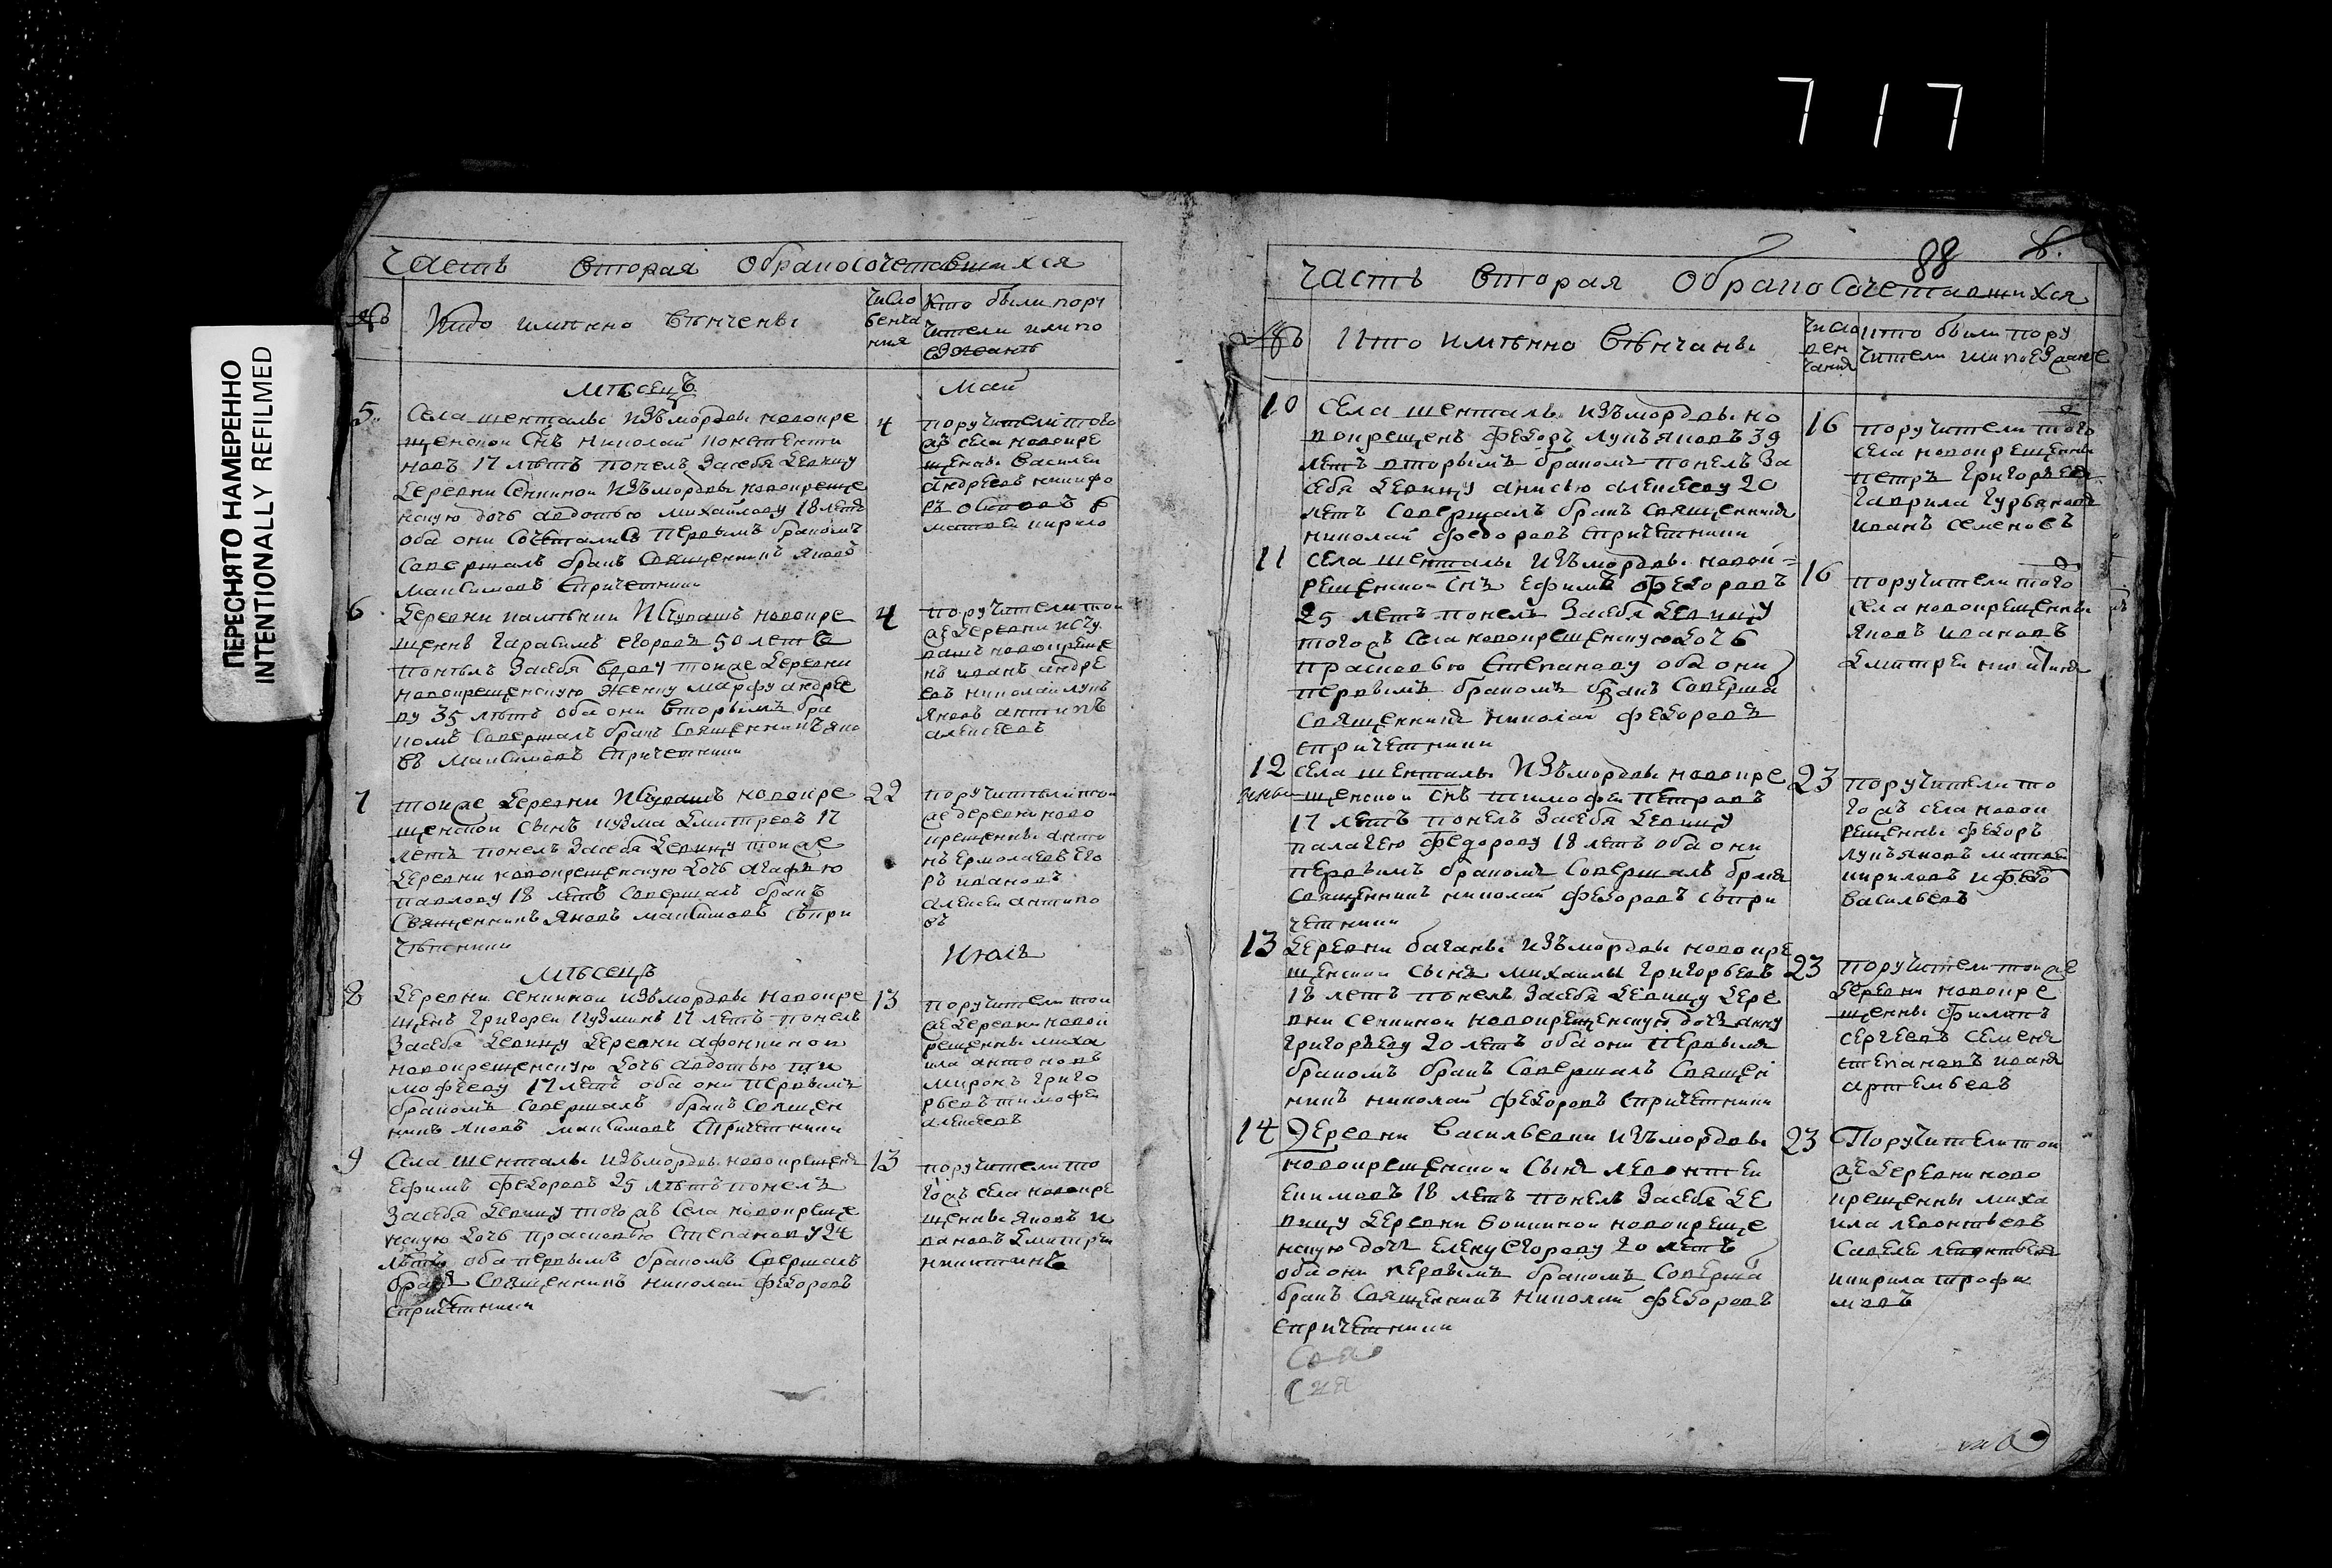 717
ПЕРЕСНЯТО НАМЕРЕННО
INTENTIONALLY REFILMED
Часть вторая обракосочетавшихся
Кто имянно венчены
Число венча ния
Кто были пору чители или по езжанъ
Мѣсецъ
Май
5
Села шенталы изъмордвы новокре
щенской снъ николай
17 лѣтъ понелъ засебя девицу
деревни сенкиной изъмордвы новокреще
нскую дочь авдотью михайлову 18 летъ
оба они сочетались первымъ бракомъ
совершалъ бракъ священникъ яковъ
максимовъ спричетники
4
поручители того
жъ села новокре
щены василеи
андреевъ никифо
матвеи кирило
6
деревни изчувашъ новокре
щенъ гарасимъ егоровъ 50 летъ
понялъ засебя вдову тоиже деревни
новокрещенскую женку марфу андрее
ву 35 лѣтъ оба они вторымъ бра
комъ совершалъ бракъ священникъ яко
въ максимовъ спричетники
4
поручители тои
же деревни исчу
вашъ новокреще
нъ иванъ андре
евъ николаи лукъ
яновъ антипъ
алексеевъ
7
тоиже деревни исчувашъ новокре
щенской сынъ кузма дмитревъ 17
летъ понелъ засебя девицу тоиже
деревни новокрещенскую дочь агафью
павлову 18 летъ совершалъ бракъ
священникъ яковъ максимовъ съпри
чѣтники
22
поручители тои
же деревни ново
крещенны анто
нъ ермолаевъ его
ръ ивановъ
алексеи антипо
въ
Мѣсецъ
Июль
8
деревни сенкиной изъмордвы новокре
щенъ григореи кузминъ 17 летъ понелъ
засебя девицу деревни афонкинои
новокрещенскую дочь авдотью ти
мофѣеву 17 летъ оба они первымъ
бракомъ совершалъ бракъ священ
никъ яковъ максимовъ спричетники
13
поручители тои
же деревни новок
рещенны миха
ила антоновъ
миронъ григо
рьевъ тимофеи
алексеевъ
9
Села шенталы изъмордвы новокрещенъ
ефимъ федоровъ 25 лѣтъ понелъ
засебя девицу тогожъ села новокреще
нскую дочь прасковью степанову 24
лѣтъ оба первымъ бракомъ свершалъ
бракъ священникъ николаи федоровъ
спричетники
13
поручители то
гожъ села новокре
щенны яковъ и
вановъ дмитреи
никитинъ
88
Часть вторая обракосочетавшихся
Кто имянно венчаны
Число вен чания
кто были пору чители или поезжане
10
села шенталы изъмордвы но
вокрещенъ федоръ лукъяновъ 39
летъ вторымъ бракомъ понелъ за
себя девицу анисью алексееву 20
летъ совершалъ бракъ священникъ
николай федоровъ спричетники
16
поручители того
села новокрещенны
петръ григоръевъ
гаврила гурьяновъ
иванъ семеновъ
11
села шенталы изъмордвы новок=
рещенской снъ ефимъ федоровъ
25 летъ понелъ засебя девицу
тогожъ села новокрещенскую дочь
прасковью степанову оба они
первымъ бракомъ бракъ соверша
священникъ николаи федоровъ
спричетники
16
поручители того
села новокрещенны
яковъ ивановъ
дмитреи никитинъ
12
села шенталы изъмордвы новокре
щенской снъ тимофеи петровъ
17 летъ понелъ засебя девицу
палагею федорову 18 летъ оба они
первымъ бракомъ совершалъ бракъ
священникъ николай федоровъ съпри
четники
23
поручители то
гожъ села новок
рещенны федоръ
лукъяновъ матвеи
кириловъ и федо
васильевъ
13
деревни баганы изъмордвы новокре
щенскои сынъ михаилы григорьевъ
18 летъ понелъ засебя девицу дере
вни сенкиной новокрещенскую дочь анну
григоръеву 20 летъ оба они первымъ
бракомъ бракъ совершалъ священ
никъ николай федоровъ спричетники
23
поручители тоиже
деревни новокре
щенны филипъ
сергеевъ семенъ
степановъ иванъ
артемьевъ
14
деревни васильевки изъмордвы
новокрещенскои сынъ леонтеи
екимовъ 18 летъ понелъ засебя де
вицу деревни новокреще
нскую дочь елену егорову 20 летъ
оба они первымъ бракомъ соверша
бракъ священникъ николаи федоровъ
спричетники
23
Поручители тои
же деревни ново
крещенны миха
ила леонтьевъ
савелеи леонтьевъ
икирила трофи
мовъ